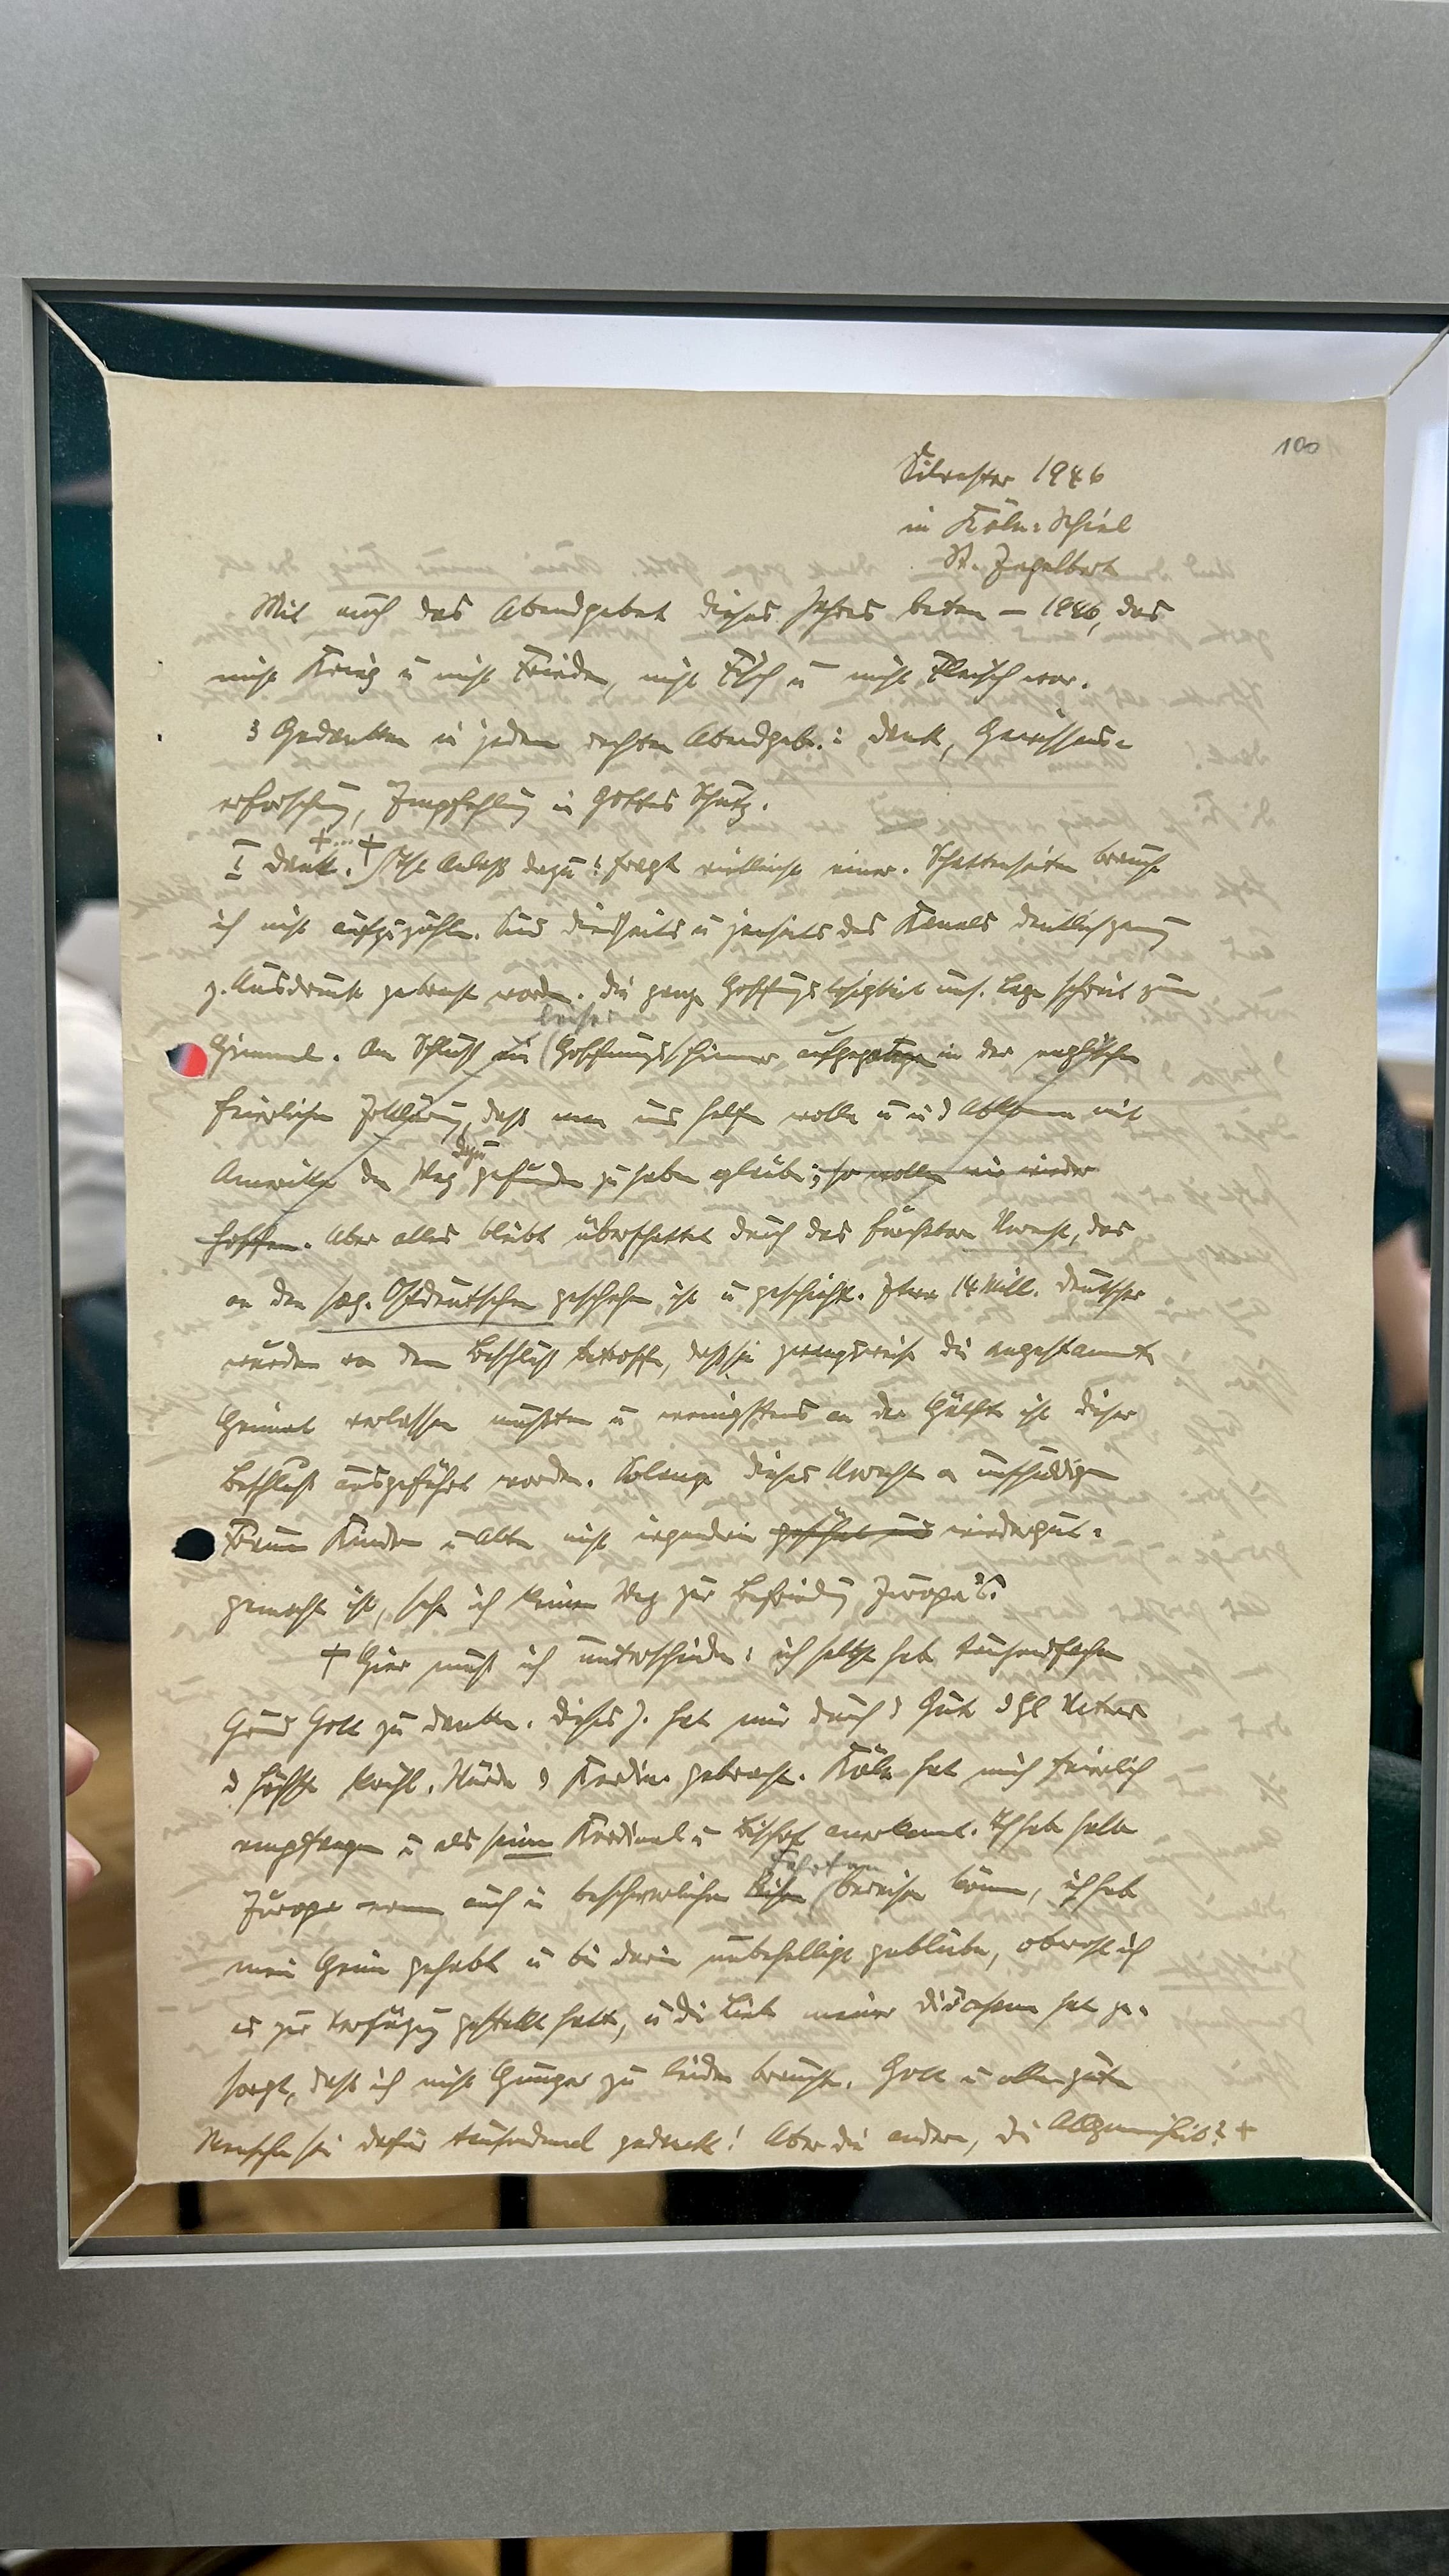 100
Silvester 1946
in Köln-Riehl
St. Engelbert
Mit euch das Abendgebet dieses Jahres beten – 1946, das
nicht Krieg u nicht Frieden, nicht Fisch u nicht Fleisch war.
3 Gedanken in jedem rechten Abendgeb.: Dank, Gewissens-
erforschung, Empfehlung in Gottes Schutz.
+...+
I Dank. Ist Anlaß dazu? fragt vielleicht einer. Schattenseiten brauche
ich nicht aufzuzählen. Sind diesseits u jenseits des Kanals deutlich genug
z. Ausdruck gebracht worden. Die ganze Hoffnungslosigkeit uns. Lage schreit zum
leiser
Himmel. Am Schluß ein Hoffnungsschimmer in der englischen
feierlichen Erklärung, daß man uns helfen wolle u in d Abkommen mit
dazu
Amerika den Weg gefunden zu haben glaube; so wollen wir wieder
hoffen. Aber alles bleibt überschattet durch das furchtbare Unrecht, das
an den sog. Ostdeutschen geschehen ist u geschieht. Etwa 14 Mill. Deutscher
wurden von dem Beschluß betroffen, daß sie zwangsweise die angestammte
Heimat verlassen mußten u wenigstens an der Hälfte ist dieser
Beschluß ausgeführt worden. Solange dieses Unrecht an unschuldigen
Frauen Kindern u Alten nicht irgendwie gesühnt und wiedergut-
gemacht ist, sehe ich keinen Weg zur Befriedung Europa's.
+ Hier muß ich unterscheiden: ich selbst habe tausendfachen
Grund Gott zu danken. Dieses J. hat mir durch d Güte d Hl Vaters
d höchste kirchl. Würde d Kardin. gebracht. Köln hat mich feierlich
empfangen u als seinen Kardinal u Bischof anerkannt. Ich habe halb
Fahrten
Europa wenn auch in beschwerlichen Reisen bereisen können, ich habe
mein Heim gehabt u bin darin unbehelligt geblieben, obwohl ich
es zur Verfügung gestellt hatte, u die Liebe meiner Diözesanen hat ge-
sorgt, daß ich nicht Hunger zu leiden brauchte. Gott u allen guten
Menschen sei dafür tausendmal gedankt! Aber die andern, die Allgemeinheit? +